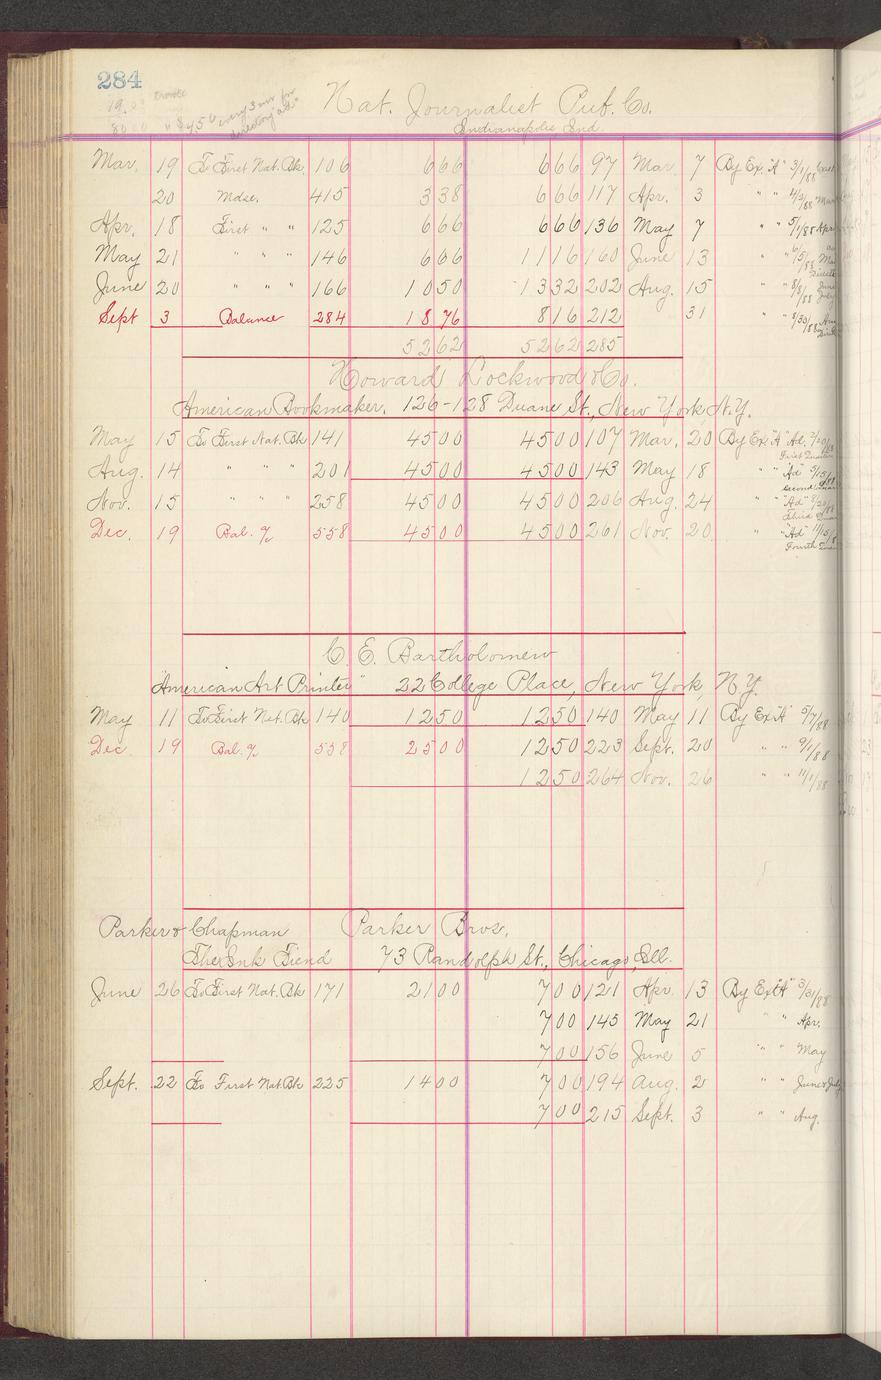 284
Nat. Journalist Pub. Co.
every 3 mo for
$4.50 directory "ad"
Indianapolis Ind.
Mar. 19 To First Nat. Bk. 106 6 66 6 66 97 Mar. 7 By Ex. "A" 3/1/88
20 Mdse. 415 3 38 6 66 117 Apr. 3 " " 4/3/88 Mar
Apr. 18 First " " 125 6 66 6 66 136 May 7 " " 5/1/88 Apr
May 21 " " " 146 6 66 11 16 160 June 13 " " 6/5/88 Ma
June 20 " " " 166 10 50 13 32 202 Aug. 15 " " 8/8/88 June July
Sept 3 Balance 284 18 76 8 16 212 31 " " 8/30/88
52 62 52 62 285
Howard Lockwood & Co.
American Bookmaker. 126-128 Duane St., New York, N.Y.
May 15 To First Nat. Bk 141 45 00 45 00 107 Mar. 20 By Ex "A" Ad. 3/20/88
First Quar
Aug. 14 " " " 201 45 00 45 00 143 May 18 " " "Ad" 5/15/88
Second Quar
Nov. 15 " " " 258 45 00 45 00 206 Aug. 24 " " "Ad" 8/20/88
Third Quar
Dec. 19 Bal. % 558 45 00 45 00 261 Nov. 20 " "Ad" 11/15/8
Fourth Quar
C. E. Bartholomew
"American Art Printer" 22 College Place, New York, N.Y.
May 11 To First Nat. Bk 140 12 50 12 50 140 May 11 By Ex "A" 5/7/88
Dec. 19 Bal. % 558 25 00 12 50 223 Sept. 20 " " 9/1/88
12 50 264 Nov. 26 " " 11/1/88
Parker & Chapman Parker Bros.
The Ink Fiend 73 Randolph St., Chicago, Ill.
June 26 To First Nat. Bk 171 21 00 7 00 121 Apr. 13 By Ex "A" 3/31/88
7 00 145 May 21 " " Apr.
7 00 156 June 5 " " May
Sept. 22 To First Nat. Bk 225 14 00 7 00 194 Aug. 2 " " June & July
7 00 215 Sept. 3 " " Aug.